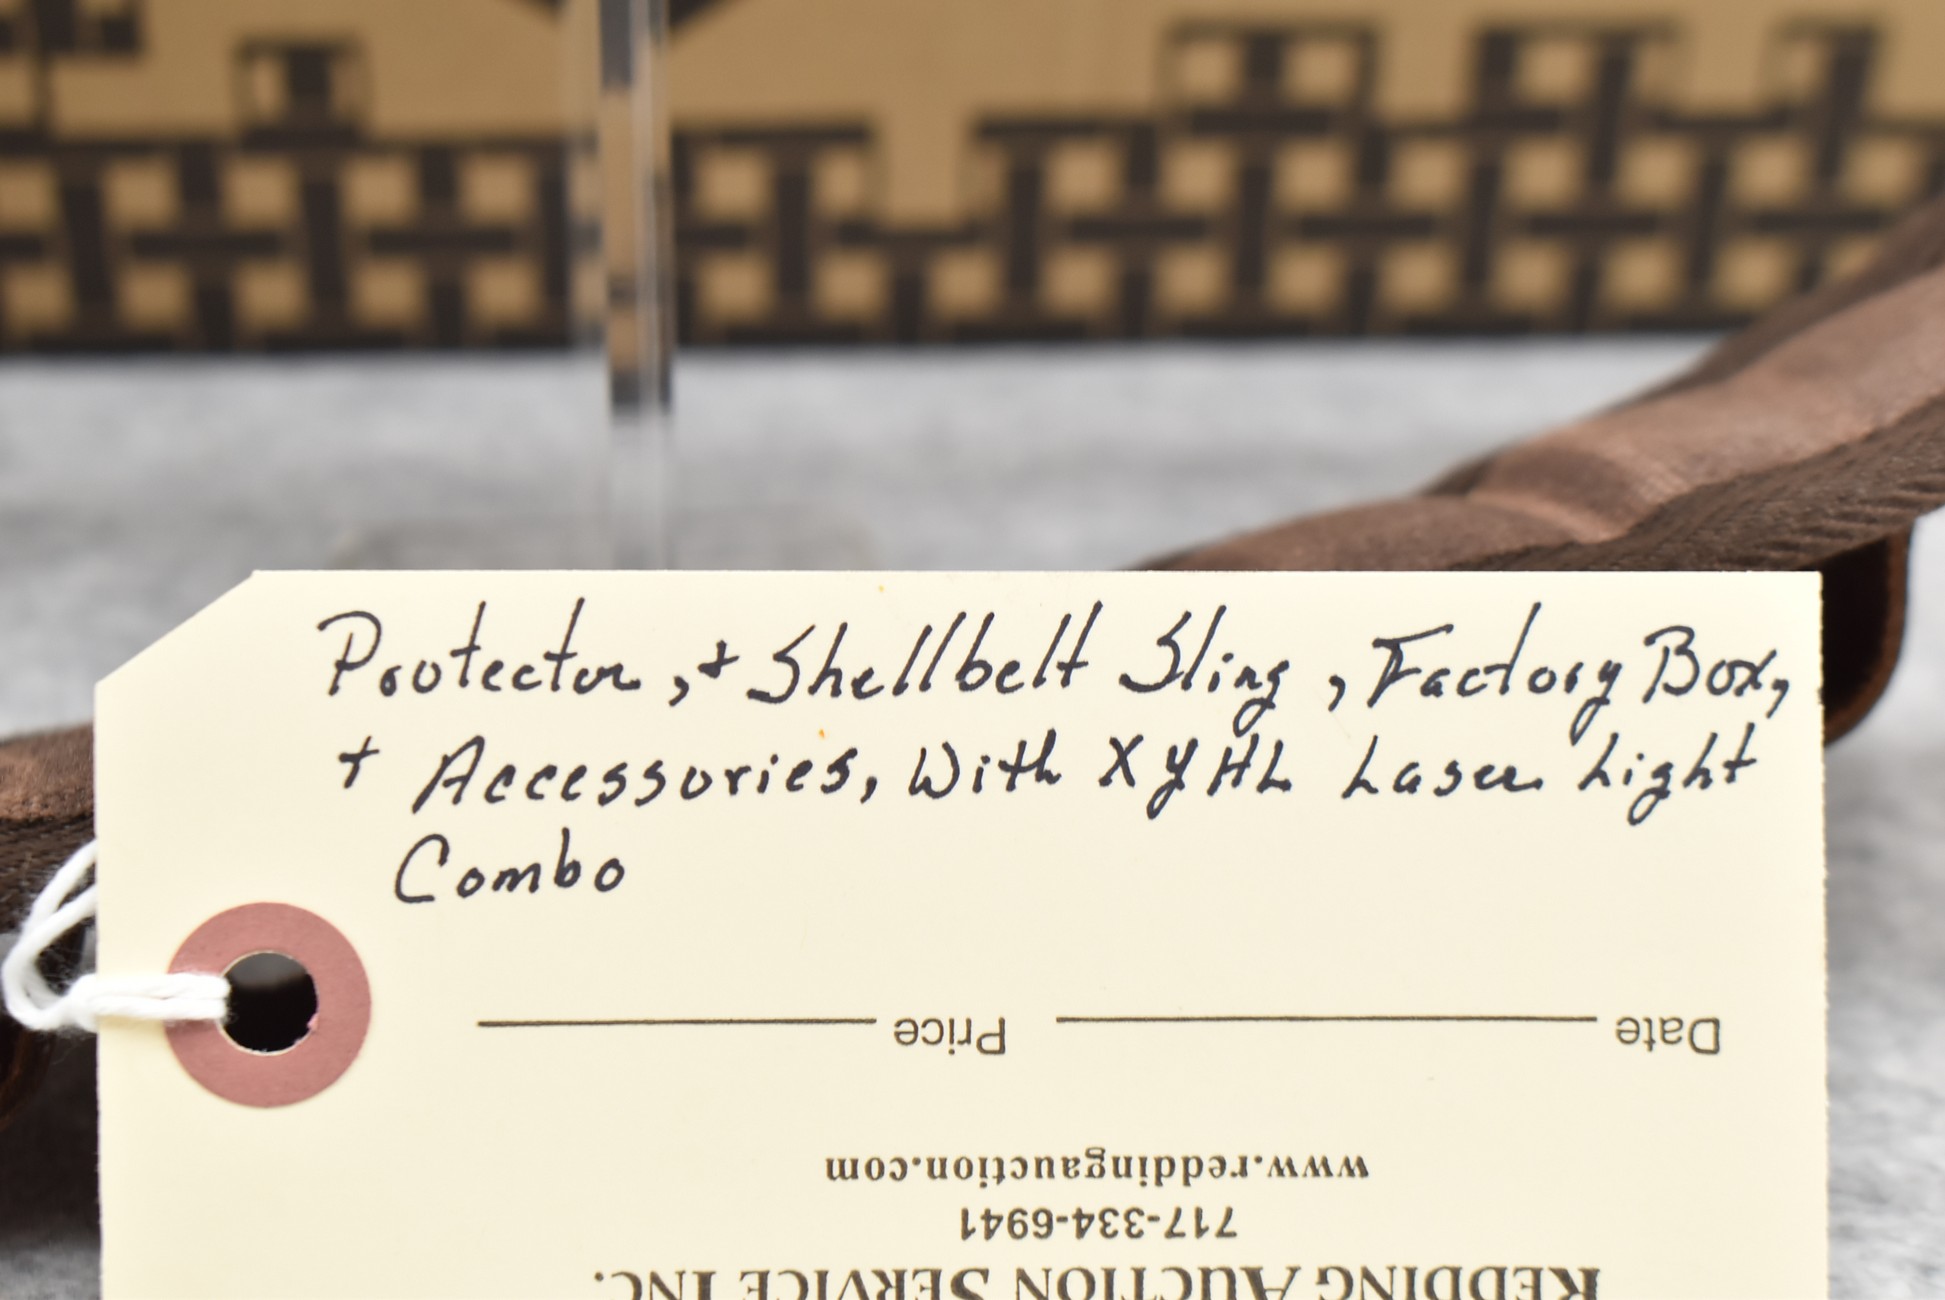 Protector, + Shellbelt Sling, Factory Box,
+ Accessories, With XYHL Laser Light
Combo
Date Price
www.reddingauction.com
717-334-6941
REDDING AUCTION SERVICE INC.